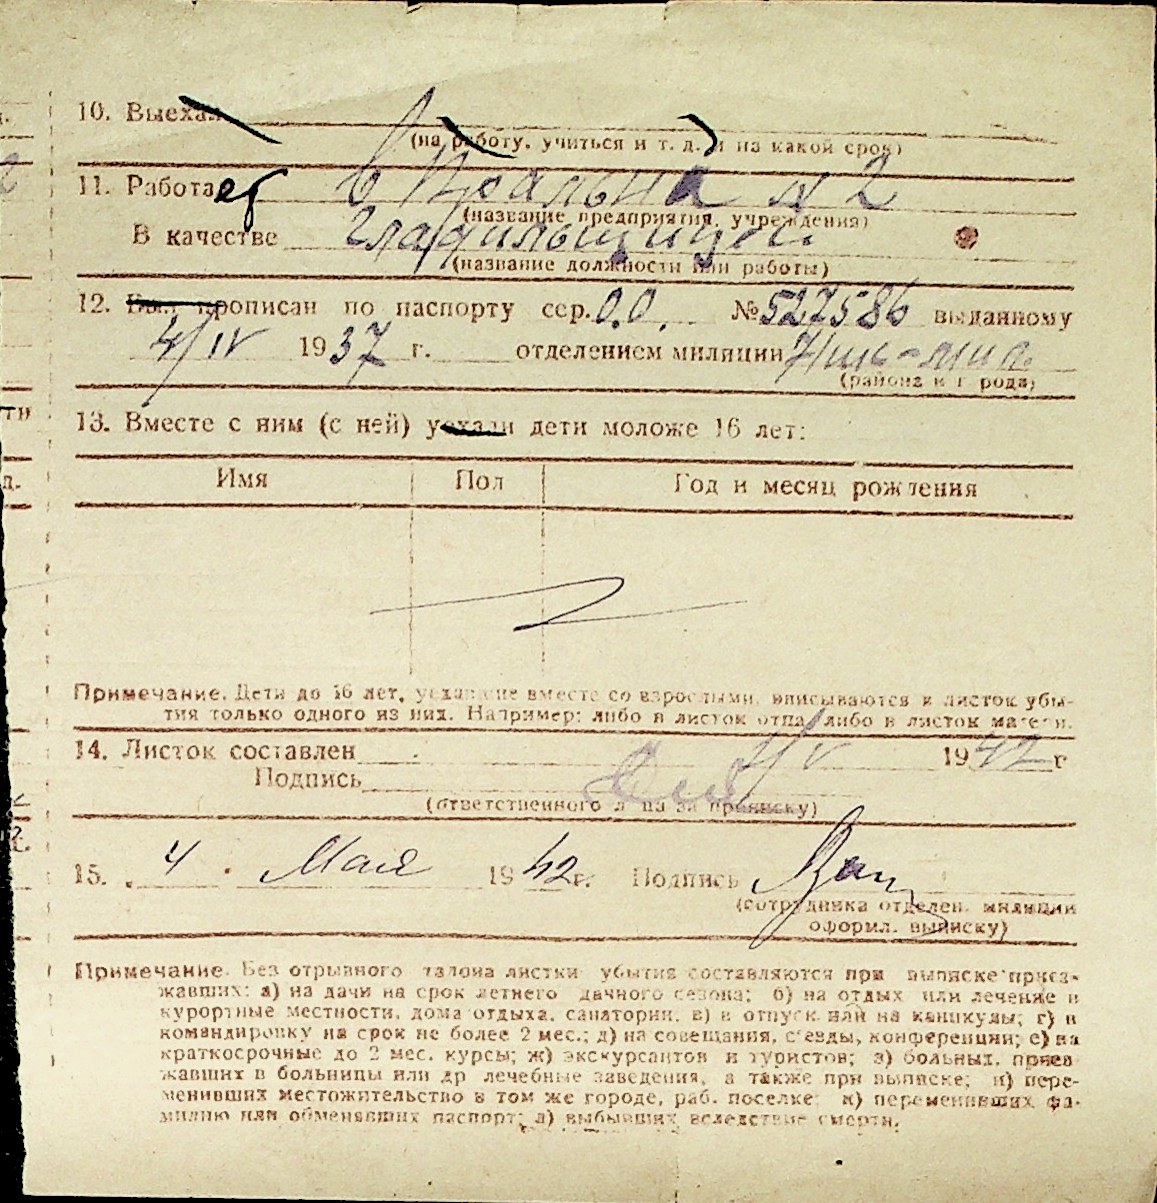 10. Выехал
(на работу, учиться и т. д. и на какой срок)
11. Работает в Пральна № 2
(название предприятия, учреждения)
В качестве гладильщицей
(название должности или работы)
12. Был прописан по паспорту сер. О.О. № 527586 выданному
4/IV 1937 г. отделением милиции
(района и города)
13. Вместе с ним (с ней) уехали дети моложе 16 лет:
Имя Пол Год и месяц рождения
Примечание. Дети до 16 лет, уехавшие вместе со взрослыми, вписываются в листок убы-
тия только одного из них. Например: либо в листок отца, либо в листок матери.
14. Листок составлен 4/V 1942 г
Подпись
(ответственного лица за прописку)
15. 4 Мая 1942 г. Подпись
(сотрудника отделен. милиции
оформ. выписку)
Примечание. Без отрывного талона листки убытия составляются при выписке приез-
жавших: а) на дачи на срок летнего дачного сезона; б) на отдых или лечение в
курортные местности, дома отдыха, санатории, в) в отпуск или на каникулы; г) в
командировку на срок не более 2 мес.; д) на совещания, с'езды, конференции; е) на
краткосрочные до 2 мес. курсы; ж) экскурсантов и туристов; з) больных, приез
жавших в больницы или др лечебные заведения, а также при выписке; и) пере-
менивших местожительство в том же городе, раб. поселке; к) переменивших фа-
милию или обменявших паспорт; л) выбывших вследствие смерти.